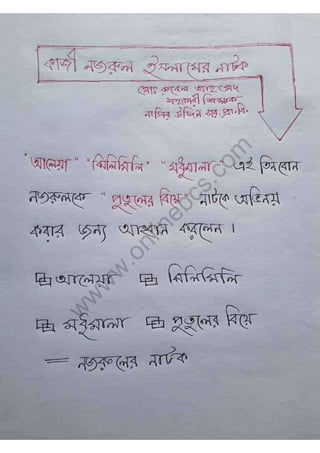 কাজী নজরুল ইসলামের নাটক
মোঃ রুবেল আহমেদ
সহকারী শিক্ষক
নাসির উদ্দিন সর. প্রা. বি.
"আলেয়া" "ঝিলিমিলি" "মধুমালা" এই তিনবোন
নজরুলকে "পুতুলের বিয়ে" নাটকে অভিনয়
করার জন্য আহবান করলেন ।
আলেয়া ঝিলিমিলি
মধুমালা পুতুলের বিয়ে
= নজরুলের নাটক
www.onlinebcs.com